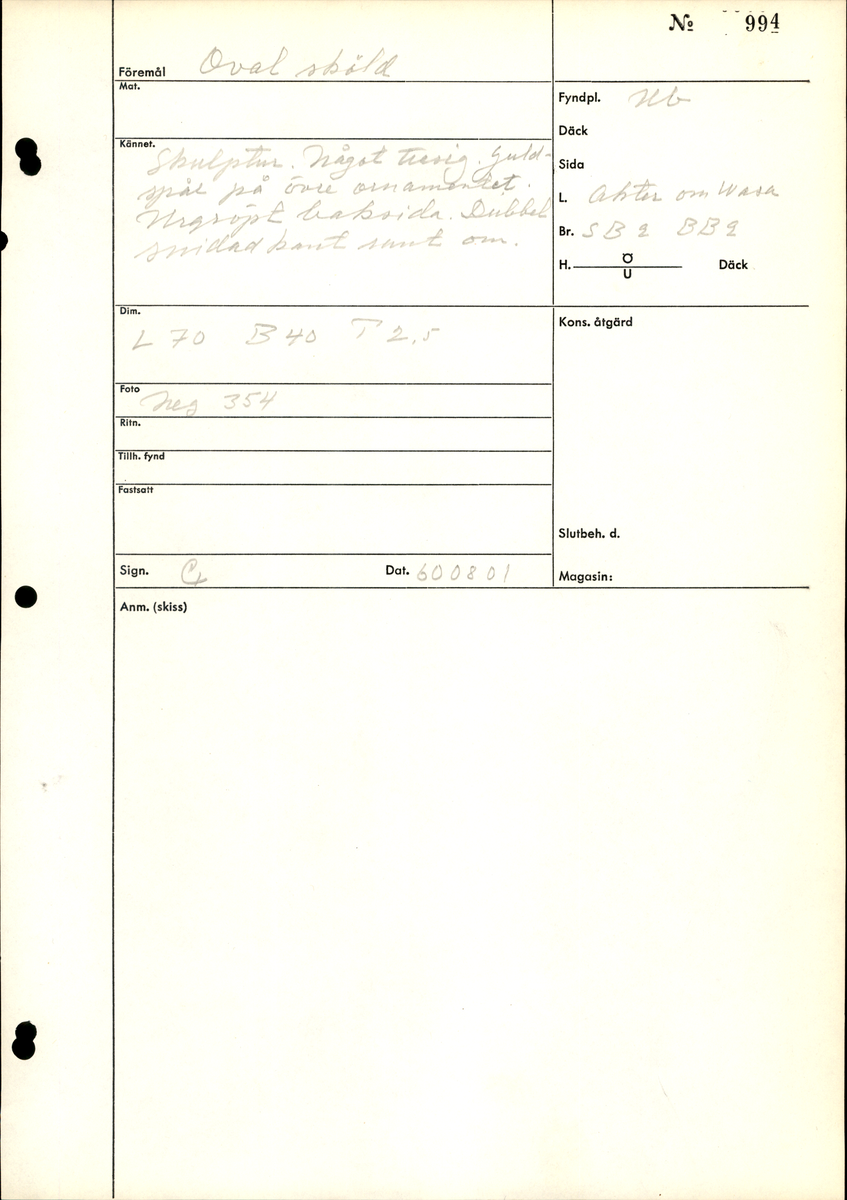 № 994
Föremål Oval sköld
Mat.
Kännet.
Skulptur. Något trasig. Guld-
spår på övre ornamentet.
Urgröpt baksida. Dubbel
snidad kant runt om.
Fyndpl. Ub
Däck
Sida
L. Akter om Wasa
Br. SB 2 BB 2
H. Ö
U
Däck
Dim.
L 70 B 40 T 2,5
Kons. åtgärd
Foto Neg 354
Ritn.
Tillh. fynd
Fastsatt
Slutbeh. d.
Sign. Dat. 600801
Magasin:
Anm. (skiss)